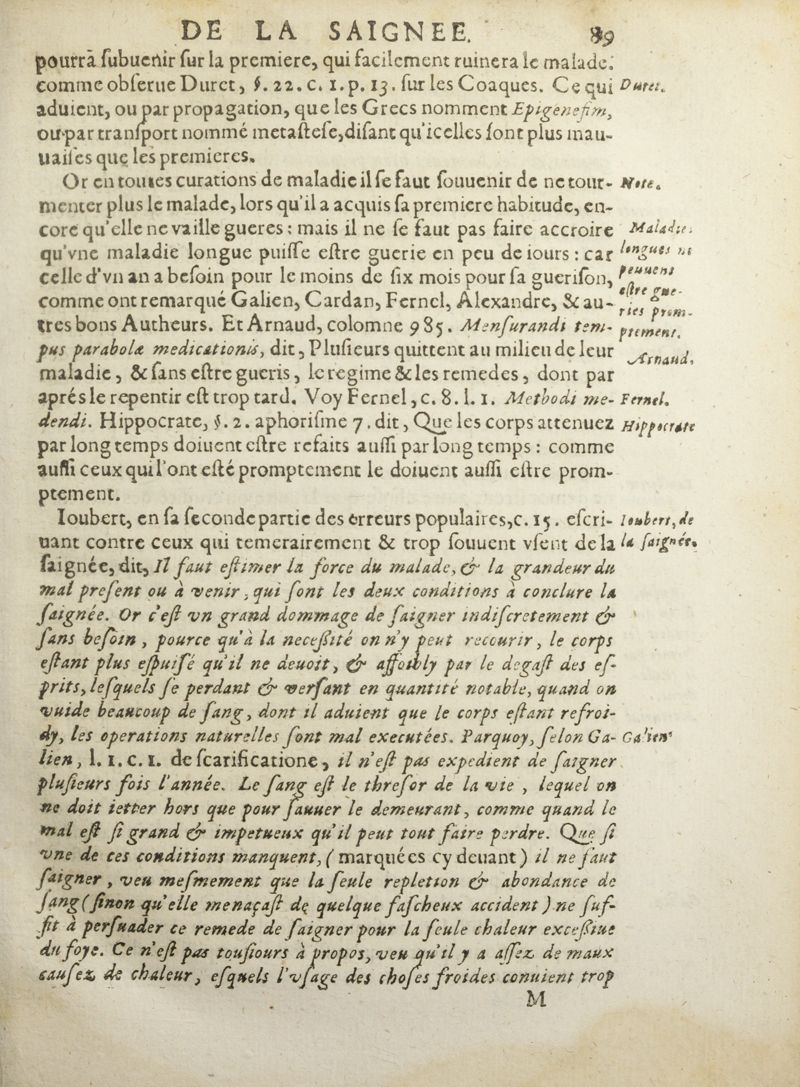 DE LA SAIGNEE. 89
pourra ſubuenir ſur la premiere, qui facilement ruinera le malade.
comme obſerue Duret, §. 22. c. 1. p. 13. ſur les Coaques. Ce qui
Duret.
aduient, ou par propagation, que les Grecs nomment Epigeneſim,
ou par tranſport nommé metaſteſe, diſant qu'icelles ſont plus mau-
uaiſes que les premieres.
Or en toutes curations de maladie il ſe faut ſouuenir de ne tour-
Note.
menter plus le malade, lors qu'il a acquis ſa premiere habitude, en-
core qu'elle ne vaille gueres : mais il ne ſe faut pas faire accroire
qu'vne maladie longue puiſſe eſtre guerie en peu de iours : car
celle d'vn an a beſoin pour le moins de ſix mois pour ſa gueriſon,
comme ont remarqué Galien, Cardan, Fernel, Alexandre, & au-
tres bons Autheurs. Et Arnaud, colomne 985. Menſurandi tem-
Maladies
longues ne
peuuent
eſtre gue-
ries prom-
ptement.
pus parabolæ medicationis, dit, Pluſieurs quittent au milieu de leur
Arnaud,
maladie, & ſans eſtre gueris, le regime & les remedes, dont par
aprés le repentir eſt trop tard. Voy Fernel, c. 8. l. 1. Methodi me-
Fernel.
dendi. Hippocrate, §. 2. aphoriſme 7. dit, Que les corps attenuez
Hippocrate
par long temps doiuent eſtre refaits auſſi par long temps : comme
auſſi ceux qui l'ont eſté promptement le doiuent auſſi eſtre prom-
ptement.
Ioubert, en ſa ſeconde partie des erreurs populaires, c. 15. eſcri-
Ioubert, de
uant contre ceux qui temerairement & trop ſouuent vſent de la
la ſaignée.
ſaignée, dit, Il faut eſtimer la force du malade, & la grandeur du
mal preſent ou à venir, qui ſont les deux conditions à conclure la
ſaignée. Or c'eſt vn grand dommage de ſaigner indiſcretement &
ſans beſoin, pource qu'à la neceſſité on n'y peut recourir, le corps
eſtant plus eſpuiſé qu'il ne deuoit, & affoibly par le degaſt des eſ-
prits, leſquels ſe perdant & verſant en quantité notable, quand on
vuide beaucoup de ſang, dont il aduient que le corps eſtant refroi-
dy, les operations naturelles ſont mal executées. Parquoy, ſelon Ga-
Galien
lien, l. 1. c. 1. de ſcarificatione, il n'eſt pas expedient de ſaigner
pluſieurs fois l'année. Le ſang eſt le threſor de la vie, lequel on
ne doit ietter hors que pour ſauuer le demeurant, comme quand le
mal eſt ſi grand & impetueux qu'il peut tout faire perdre. Que ſi
vne de ces conditions manquent, ( marquées cy deuant ) il ne faut
ſaigner, veu meſmement que la ſeule repletion & abondance de
ſang ( ſinon qu'elle menaçaſt de quelque faſcheux accident ) ne ſuf-
fit à perſuader ce remede de ſaigner pour la ſeule chaleur exceſſiue
du foye. Ce n'eſt pas touſiours à propos, veu qu'il y a aſſez de maux
cauſez de chaleur, eſquels l'vſage des choſes froides conuient trop
M